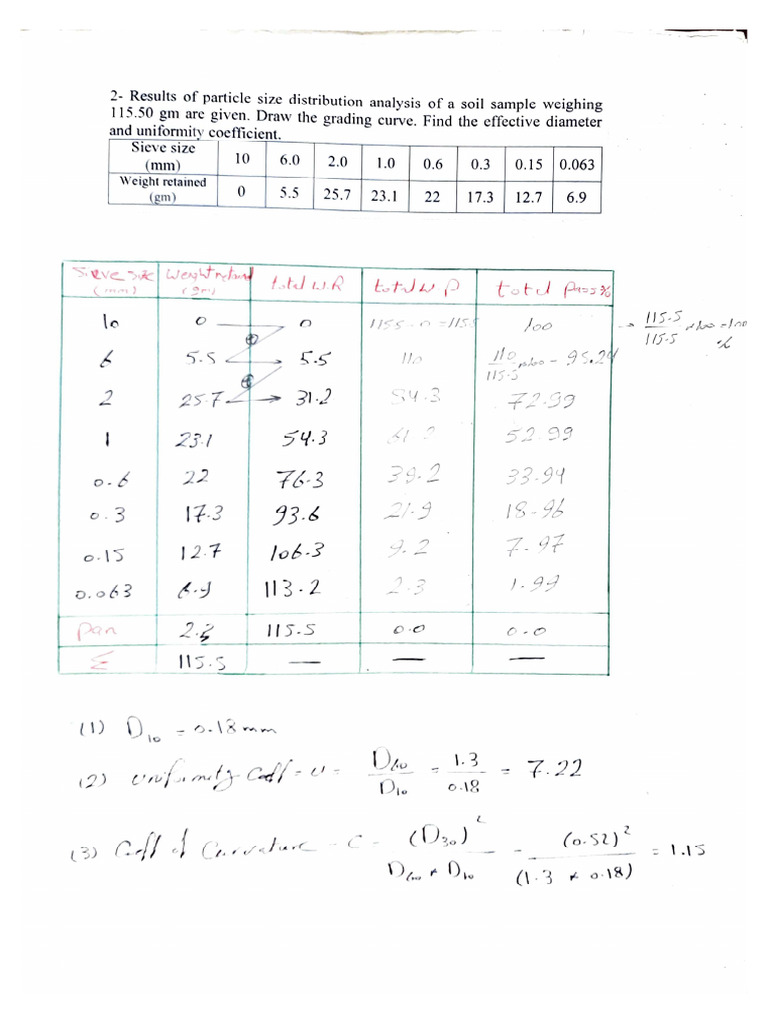 2- Results of particle size distribution analysis of a soil sample weighing
115.50 gm are given. Draw the grading curve. Find the effective diameter
and uniformity coefficient.
Sieve size (mm) 10 6.0 2.0 1.0 0.6 0.3 0.15 0.063
Weight retained (gm) 0 5.5 25.7 23.1 22 17.3 12.7 6.9
Sieve size (mm) weight retaind (gm) total W.R total W P total Pass%
10 0 0 115.5-0=115.5 100 → 115.5/115.5 *100=100 %
6 5.5 5.5 110 110/115.5 *100 = 95.24
2 25.7 31.2 84.3 72.99
1 23.1 54.3 61.2 52.99
0.6 22 76.3 39.2 33.94
0.3 17.3 93.6 21.9 18.96
0.15 12.7 106.3 9.2 7.97
0.063 6.9 113.2 2.3 1.99
Pan 2.3 115.5 0.0 0.0
Σ 115.5 — — —
(1) D10 = 0.18mm
(2) uniformity Coff = U = D60/D10 = 1.3/0.18 = 7.22
(3) Coff of Curvature = C = (D30)²/D60 * D10 = (0.52)²/(1.3 * 0.18) = 1.15